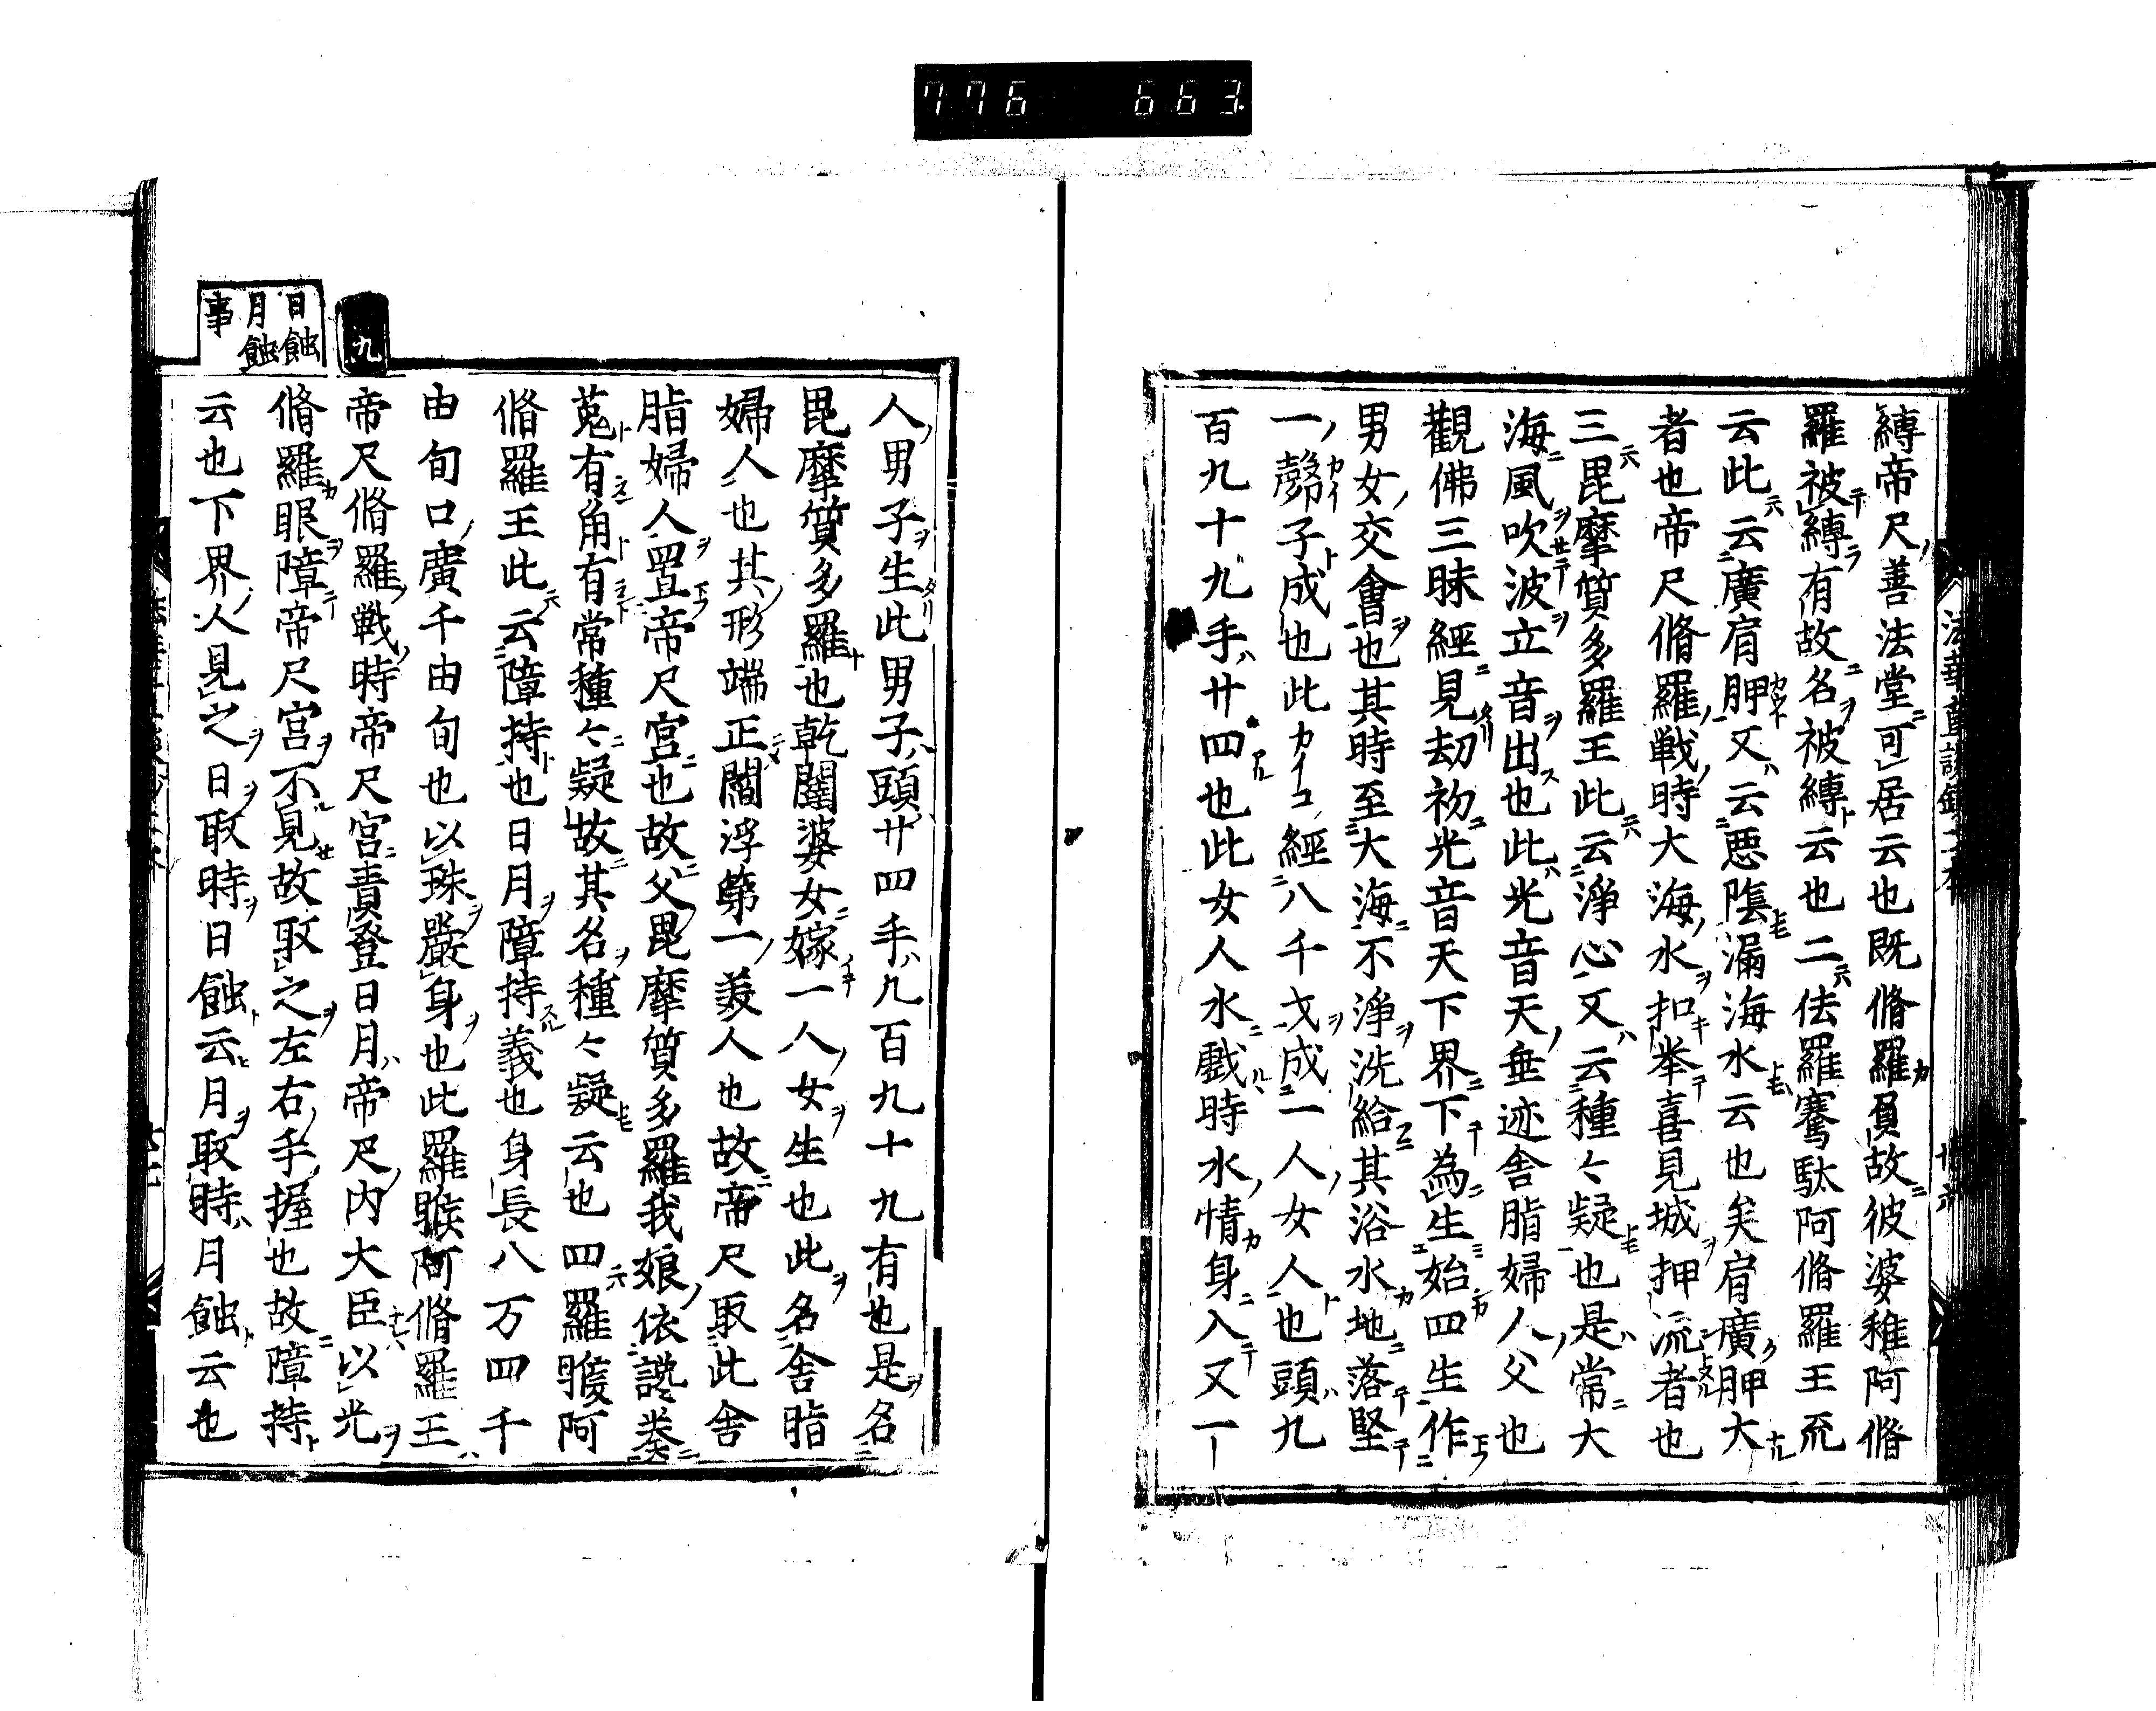 776 663
縛帝尺善法堂可居云也既脩羅負故彼婆稚阿脩
羅被縛有故名被縛云也二佉羅騫馱阿脩羅王䟽
云此云廣肩胛又云悪陰漏海水云也矣肩廣胛大
者也帝尺脩羅戦時大海水扣挙喜見城押流者也
三毘摩質多羅王此云淨心又云種々疑也是常大
海風吹波立音出也此光音天垂迹舎脂婦人父也
觀佛三昧經見劫初光音天下界下為生始四生作
男女交會也其時至大海不淨洗給其浴水地落堅
一子成也此カイコ經八千才成一人女人也頭九
百九十九手廿四也此女人水戲時水情身入又一
人男子生此男子頭廿四手九百九十九有也是名
毘摩質多羅也乾闥婆女嫁一人女生也此名舎脂
婦人也其形端正閻浮第一美人也故帝尺取此舎
脂婦人置帝尺宮也故父毘摩質多羅我娘依讒奏
菟有角有常種々疑故其名種々疑云也四羅睺阿
脩羅王此云障持也日月障持義也身長八万四千
由旬口廣千由旬也以珠嚴身也此羅睺阿脩羅王
帝尺脩羅戦時帝尺宮責登日月帝尺内大臣以光
脩羅眼障帝尺宮不見故取之左右手握也故障持
云也下界人見之日取時日蝕云月取時月蝕云也
九
日蝕
月蝕
事